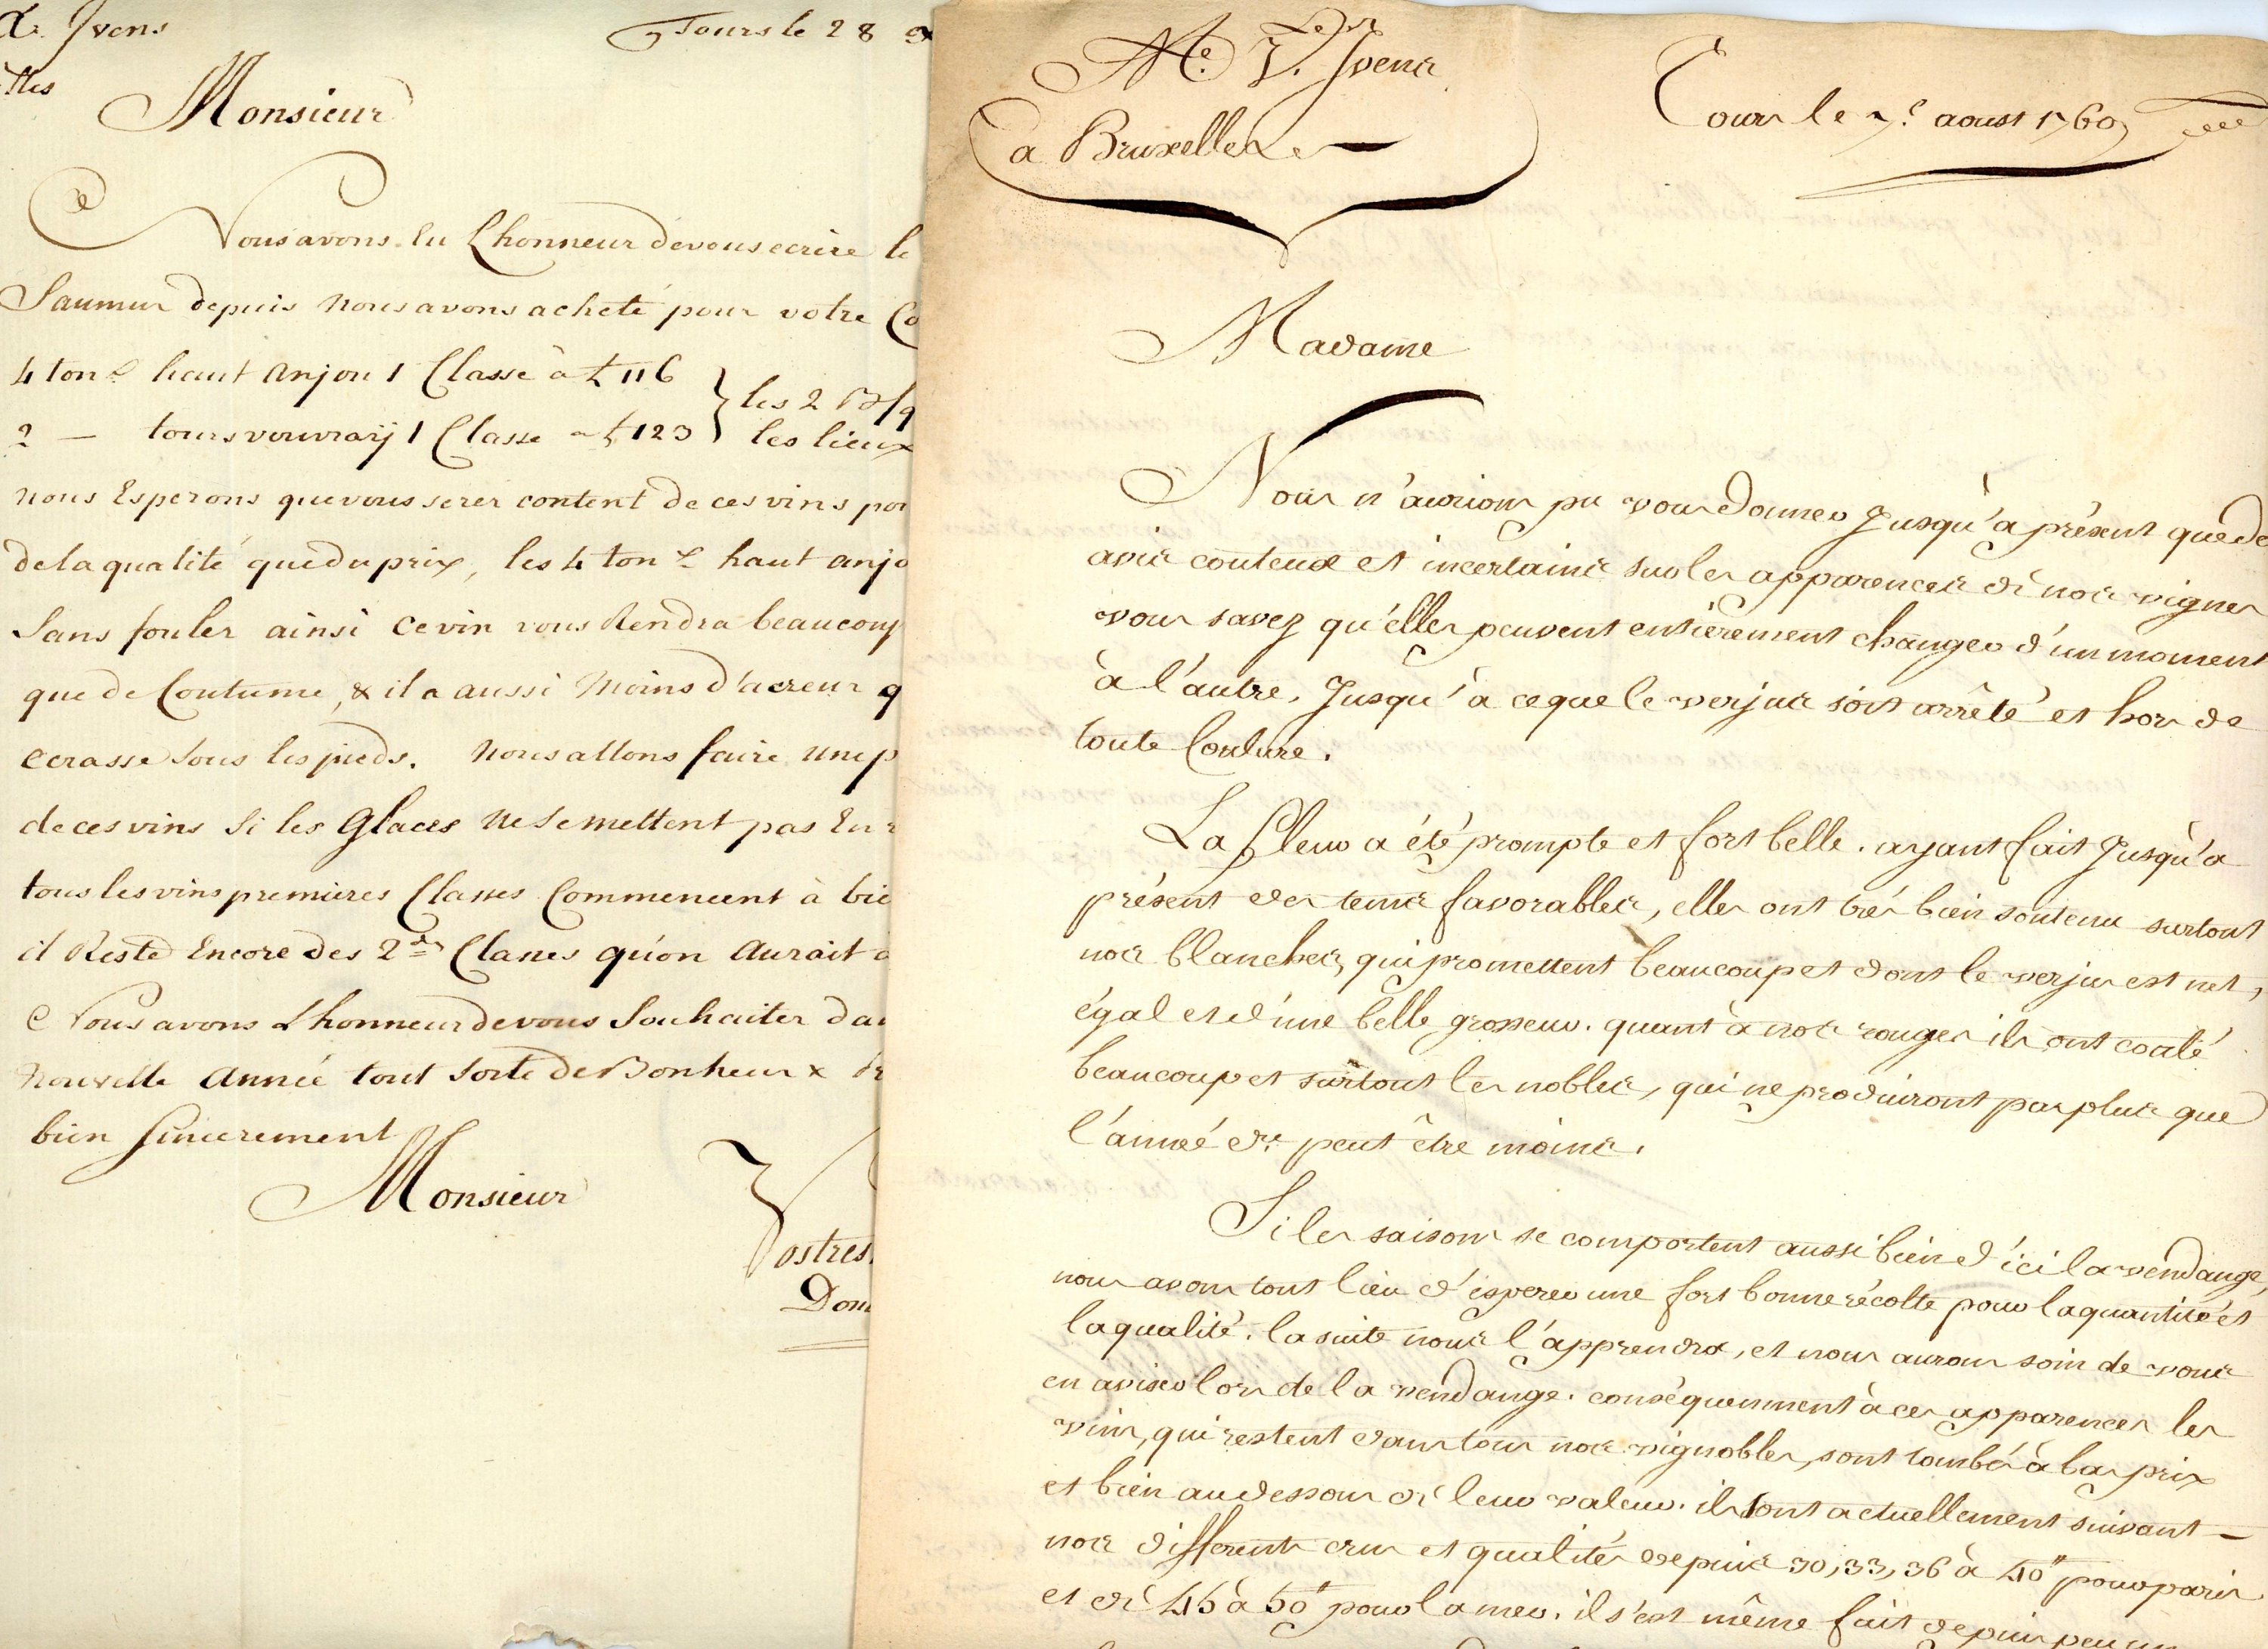 Jvens
Tours le 28
Monsieur
Nous avons Eu Lhonneur de vous ecrire le
Saumur depuis nous avons acheté pour votre Co
4 ton.x haut anjou 1 Classe à ₶ 116
les 2 B/q
2 — tours vouvraÿ 1 Classe a ₶ 123
les lieux
nous Esperons que vous serez content de ces vins por
de la qualité que du prix, les 4 ton.x haut anjo
Sans fouler ainsi ce vin vous Rendra beaucoup
que de Coutume, & il a aussi Moins d'acreur q
ecrasse sous les pieds. Nous allons faire une p
de ces vins si les Glaces ne se mettent pas En r
tous les vins premieres Classes Commencent à bie
il Reste Encore des 2des Classes qu'on Aurait a
Nous avons Lhonneur de vous Souhaiter dan
Nouvelle Année tout Sorte de Bonheur &
bien Sincerement
Monsieur
Vostres
Dom
Me. Ve. Jvens
a Bruxelles
Tours le 7.e aoust 1760
Madame
Nous n'aurions pu vous donner Jusqu'à présent que de
avis couteux et incertains sur les apparences de nos vignes
vous savez qu'elles peuvent entièrement changer d'un moment
à l'autre, Jusqu'à ce que le verjus soit arrêté et hors de
toute Coulure.
La fleur a été prompte et fort belle. ayant fait Jusqu'a
présent des tems favorables, elles ont très bien soutenu surtout
nos blanches, qui promettent beaucoup et dont le verjus est net,
égal et d'une belle grosseur. quant à nos rouges ils ont coulé
beaucoup et surtout les nobles, qui ne produiront pas plus que
l'année d.re peut être moins.
Si les saisons se comportent aussi bien d'ici la vendange,
nous avons tout lieu d'esperer une fort bonne récolte pour la quantité et
la qualité. la suite nous l'apprendra, et nous aurons soin de vous
en aviser lors de la vendange. conséquemment à ces apparences les
vins, qui restent dans tous nos vignobles, sont tombés à bas prix
et bien au dessous de leur valeur. ils sont actuellement suivant
nos differents crus et qualités depuis 30, 33, 36 à 40₶ pour paris
et de 45 à 50₶ pour la mer. il s'est même fait depuis peu un